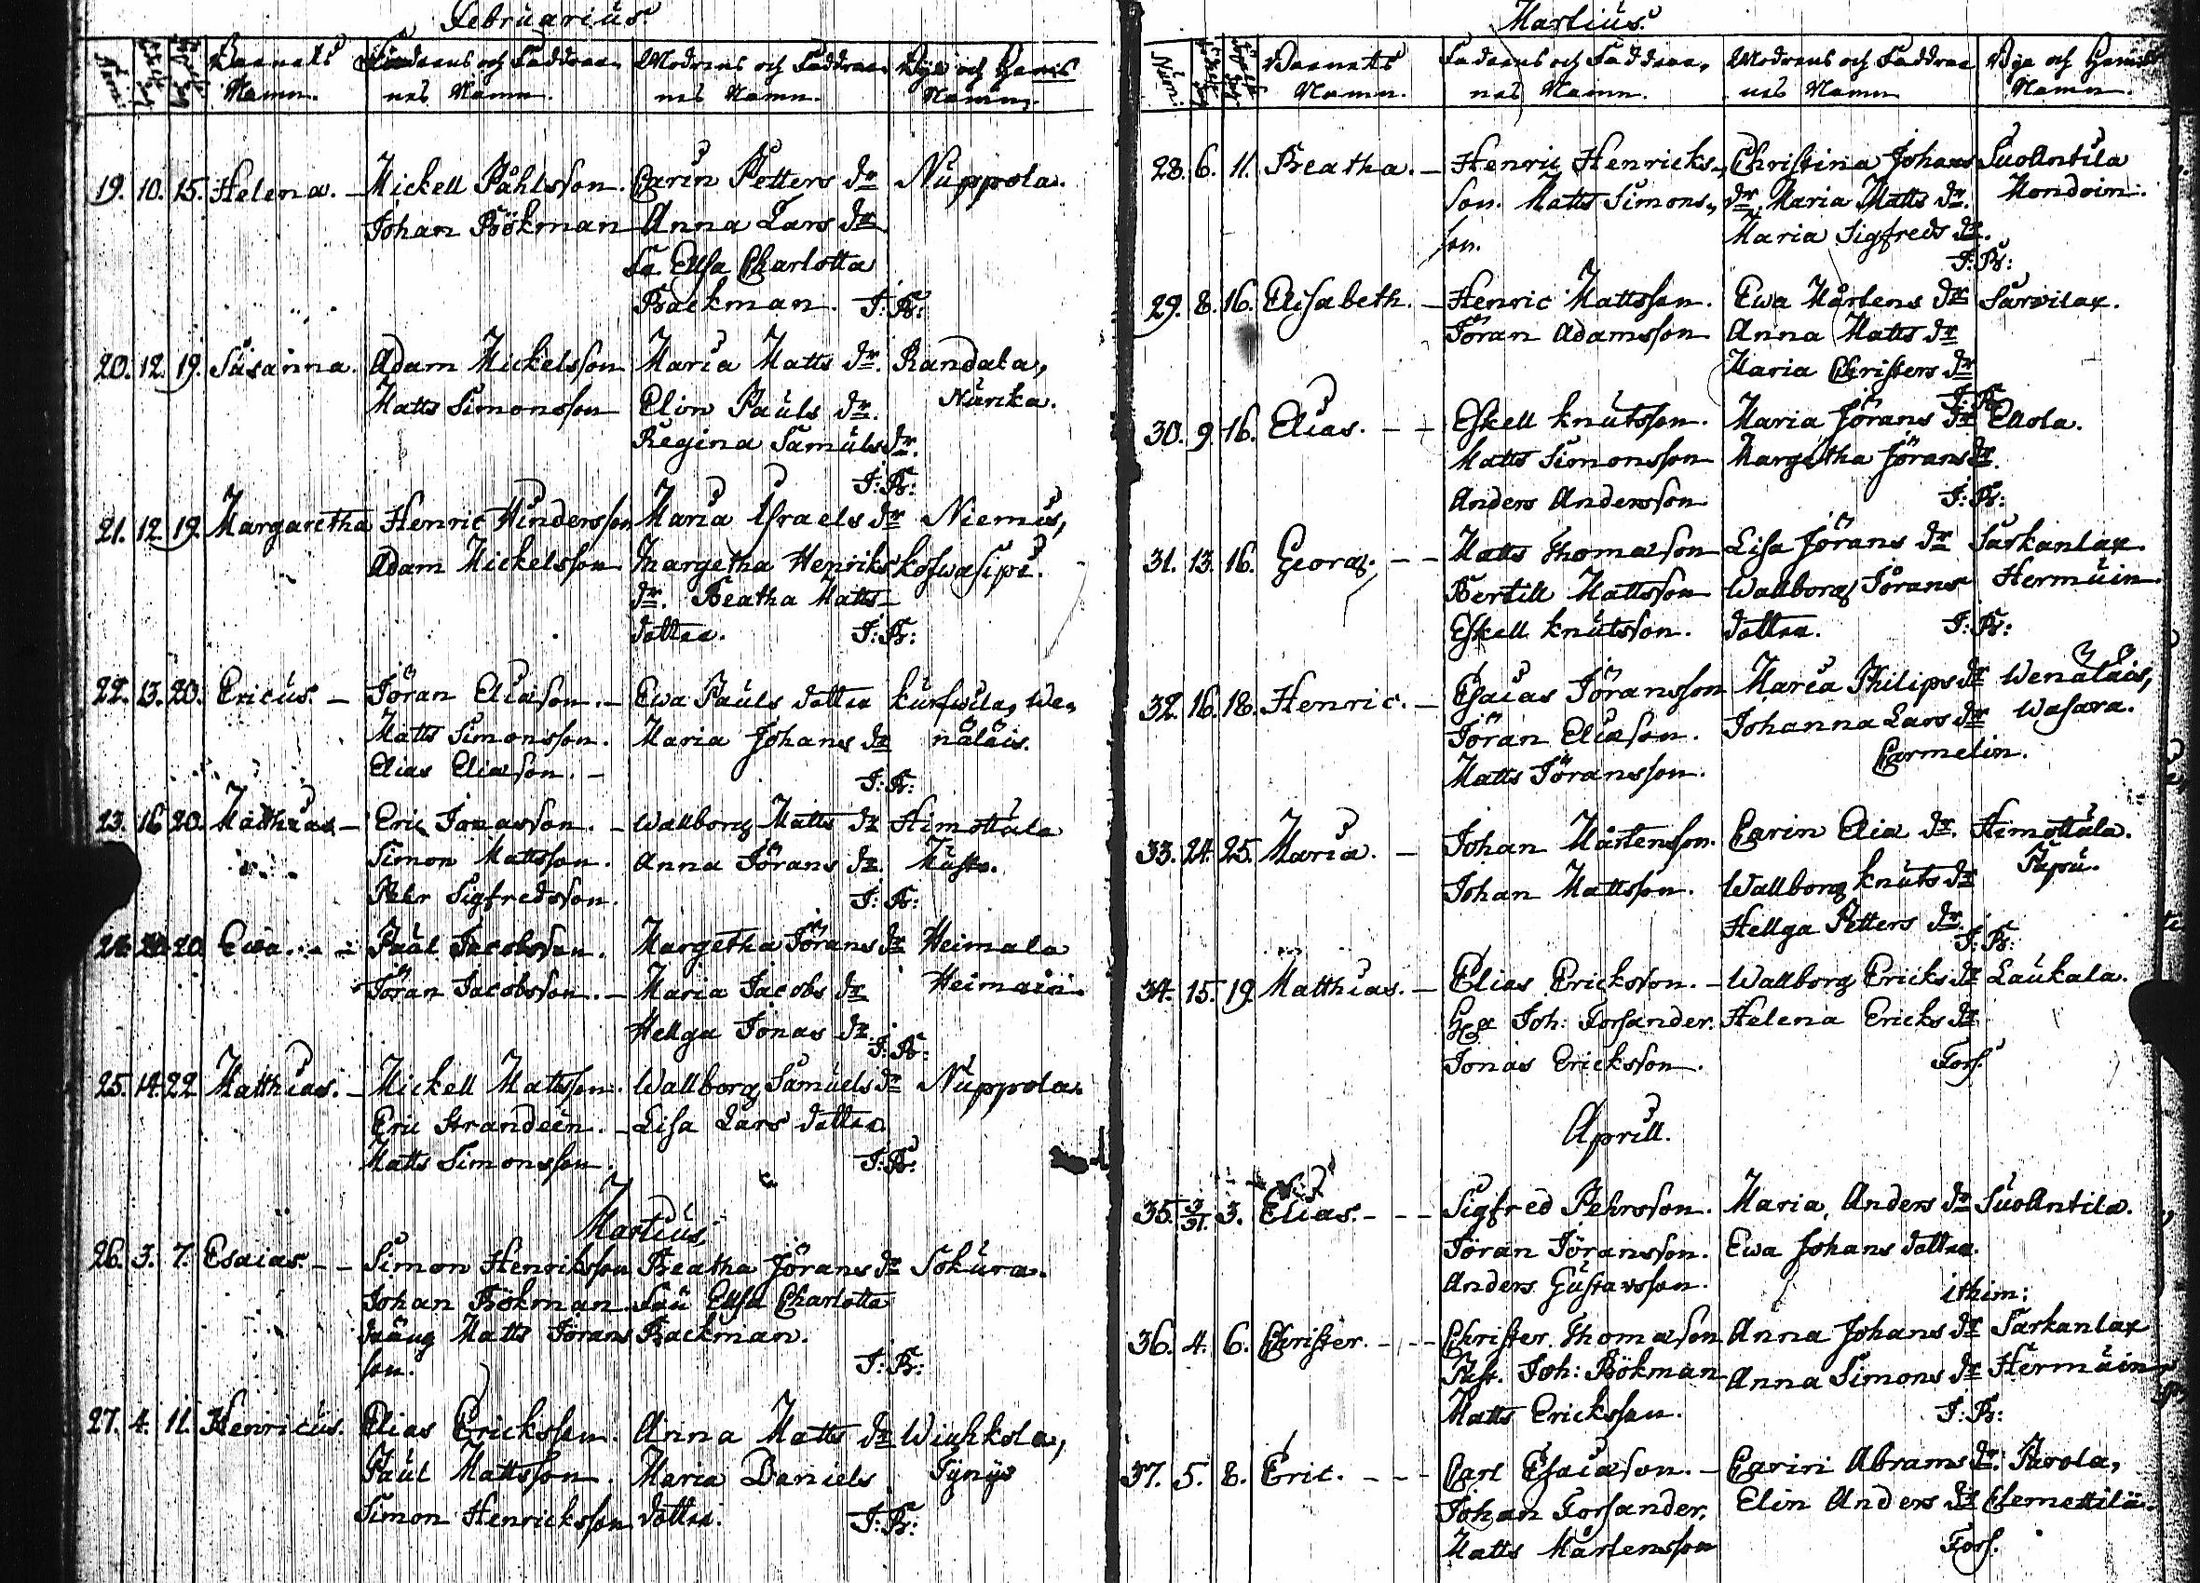 Februarius.
Num: Barnets Namn. Fadrens och Faddrar- nes Namn. Modrens och Faddrar- nes Namn. Bys och Hemb Namn.
19. 10. 15. Helena. – Mickell Påhlsson. Carin Petters dr Nuppola.
Johan Bökman Anna Lars dr
Fr. Elsa Charlotta
Backman. J: B:
20. 12. 19. Susanna. Adam Mickelsson Maria Matts dr. Randala,
Matts Simonsson Elin Pauls dr. Nurcka.
Regina Samuls dr.
J: B:
21. 12. 19. Margaretha Henric Hindersson Maria Israels dr Niemus,
Adam Mickelsson Margetha Henriks Koswasipi.
dr. Beatha Matts
dotter. J: B:
22. 13. 20. Ericus. – Jöran Eliasson. – Ewa Pauls dotter Kurswila, We-
Matts Simonsson. Maria Johans dr näläis.
Elias Eliasson. – J: B:
23. 16 20. Matthias – Eric Jonasson. – Wallborg Matts dr Himottula
Simon Mattsson. Anna Jörans dr. Musto.
Petr Sigfredsson. J: B:
24. 20 20 Ewa. – – Paul Jacobsson. Margetha Jörans dr Heimala
Jöran Jacobsson. – Maria Jacobs dr Heimain.
Hellga Jonas dr.
J: B:
25. 14. 22 Matthias. – Mickell Mattsson. Wallborg Samuels dr Nuppola.
Eric Strandeen. – Lisa Lars dotter
Matts Simonsson. J: B:
Martius.
26. 3. 7. Esaias. – – Simon Henriksson Beatha Jörans dr Sokura.
Johan Bökman Fru Elsa Charlotta
dräng Matts Jörans Backman.
son. J: B:
27. 4. 11. Henricus. Elias Ericksson. Anna Matts dr Wiuhkola,
Paul Mattsson. Maria Daniels Tynys
Simon Henricksson dotter. J: B:
Martius.
Num: Barnets Namn. Fadrens och Faddrar- nes Namn. Modrens och Faddrar nes Namn Bys och Hemb Namn.
28. 6. 11. Beatha. – Henric Henricks- Christina Johans SuoAntila
son. Matts Simons- dr. Maria Matts dr. Mondoin.
son. Maria Sigfreds dr.
J: B:
29. 8. 16. Elisabeth. – Henric Mattsson. Ewa Mårtens dr Sarvilax.
Jöran Adamsson Anna Matts dr
Maria Christers dr
J: B:
30. 9. 16. Elias. – – Eskell Knutsson. Maria Jörans dr Ellola.
Matts Simonsson Margetha Jörans dr.
Anders Andersson J: B:
31. 13. 16. Georg. – – Matts Thomasson Lisa Jörans dr Särkanlax
Bertill Mattsson Wallborg Jörans Hermuin
Eskell Knutsson. dotter. J: B:
32. 16. 18. Henric. – Esaias Jöransson Maria Philips dr Wenäläis,
Jöran Eliasson. Johanna Lars dr Wasara.
Matts Jöransson. Carmelin.
33. 24. 25. Maria. – Johan Mårtensson. Carin Elia dr. Himottula.
Johan Mattsson. Wallborg Knuts dr Pupu.
Hellga Petters dr.
J: B:
34. 15. 19 Matthias. – Elias Ericksson. – Wallborg Ericks dr Laukala.
Joh: Forsander. Helena Ericks dr
Jonas Ericksson. Fors.
Aprill.
35. 3/31. 3. Elias. – – – Sigfred Pehrsson. Maria Anders dr SuoAntila.
Jöran Jöransson. Ewa Johans dotter.
Anders Gustavsson. ithim:
36. 4. 6. Christer. – – Christer Thomasson Anna Johans dr Särkanlax
Joh: Bökman Anna Simons dr Hermuin
Matts Ericksson. J: B:
37. 5. 8. Eric. – – – Carl Esaiasson. – Carin Abrams dr. Parola,
Johan Forsander. Elin Anders dr Clemettilä.
Matts Mårtensson Fors.